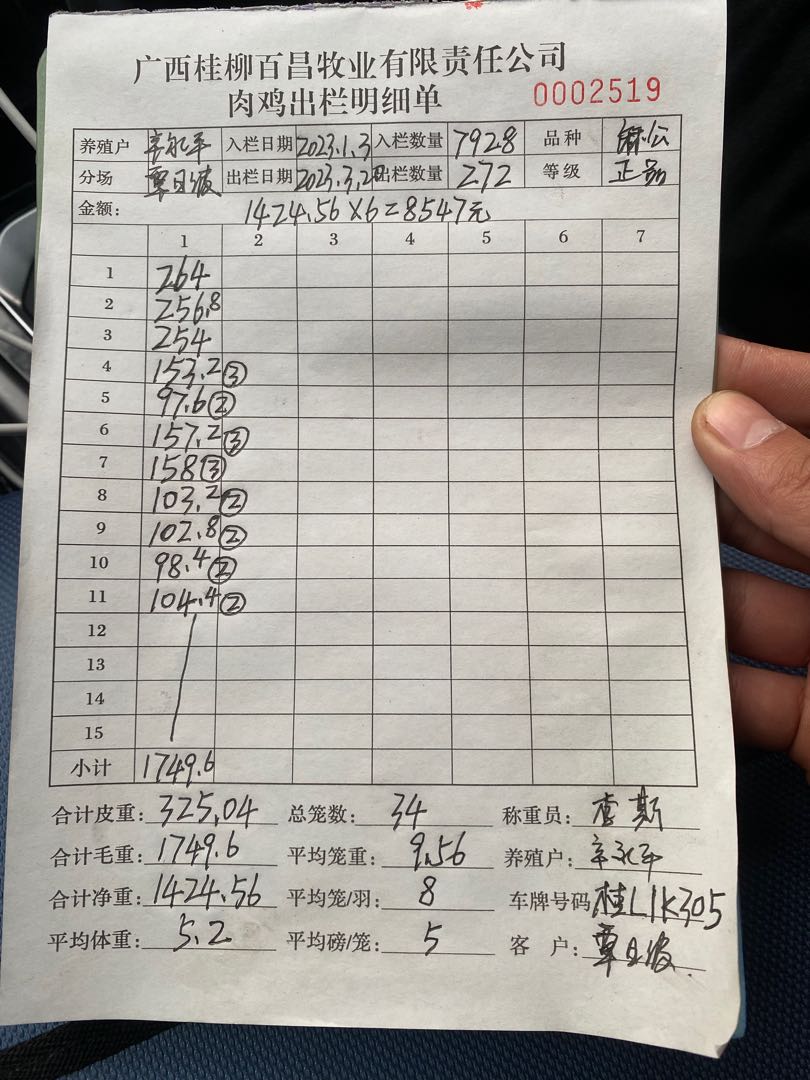 广西桂柳百昌牧业有限责任公司
肉鸡出栏明细单 0002519
养殖户 辛永平 入栏日期 2023.1.3 入栏数量 7928 品种 麻公
分场 覃日波 出栏日期 2023.3.20 出栏数量 272 等级 正品
金额: 1424.56×6=8547元
1 2 3 4 5 6 7
1 264
2 256.8
3 254
4 153.2③
5 97.6②
6 157.2③
7 158③
8 103.2②
9 102.8②
10 98.4②
11 104.4②
12
13
14
15
小计 1749.6
合计皮重: 325.04 总笼数: 34 称重员: 李斯
合计毛重: 1749.6 平均笼重: 9.56 养殖户: 辛永平
合计净重: 1424.56 平均笼/羽: 8 车牌号码 桂L1K305
平均体重: 5.2 平均磅/笼: 5 客 户: 覃日波